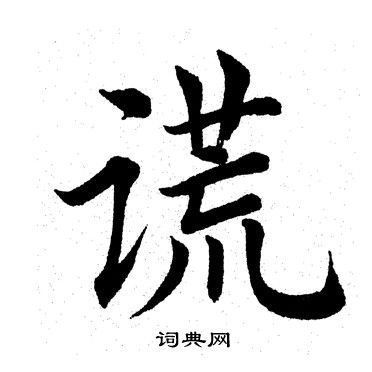 谎
词典网